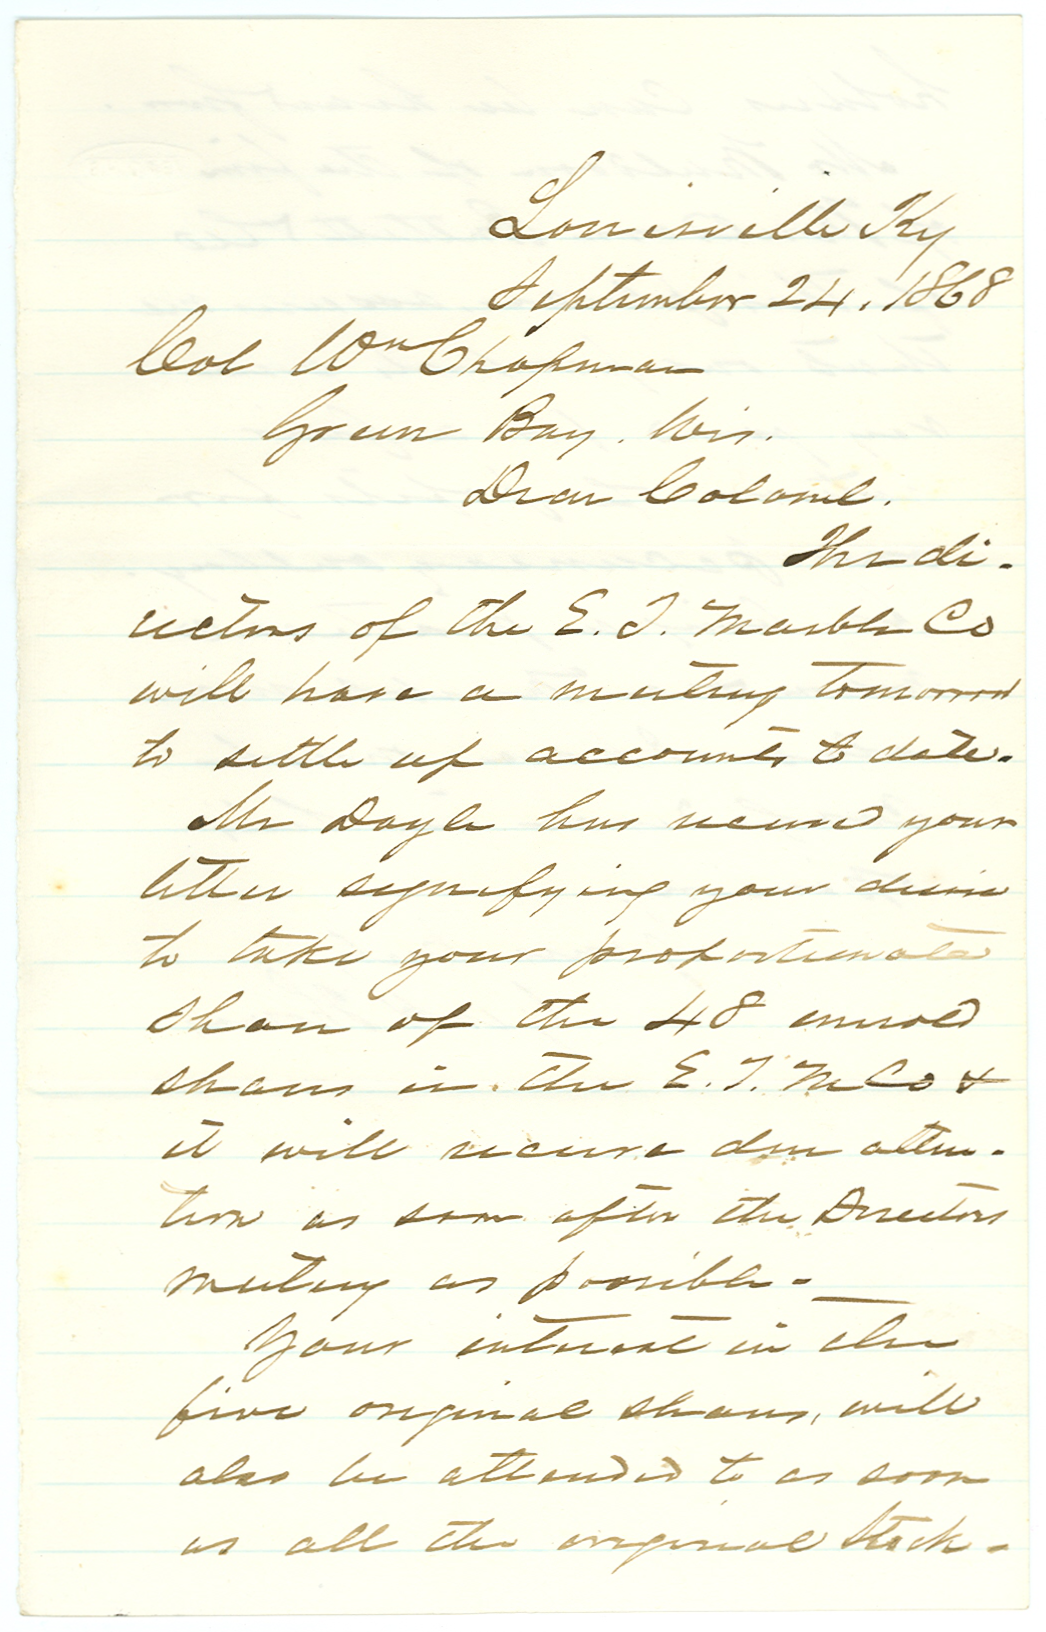 Louisville Ky
September 24, 1868
Col Wm Chapman
Green Bay. Wis.
Dear Colonel.
The di-
rectors of the E. T. Marble Co
will have a meeting tomorrow
to settle up accounts to date.
Mr Doyle has received your
letter signifying your desire
to take your proportionate
share of the 48 unsold
shares in the E. T. M Co &
it will secure due atten-
tion as soon after the Directors
meeting as possible.
Your interest in the
five original shares, will
also be attended to as soon
as all the original Stock-